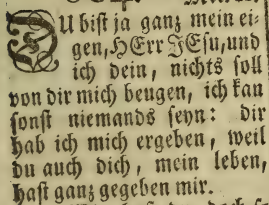 DU bist ja ganz mein ei-
gen, HErr JEsu, und
ich dein, nichts soll
von dir mich beugen, ich kan
sonst niemands seyn: dir
hab ich mich ergeben, weil
du auch dich, mein leben,
hast ganz gegeben mir.